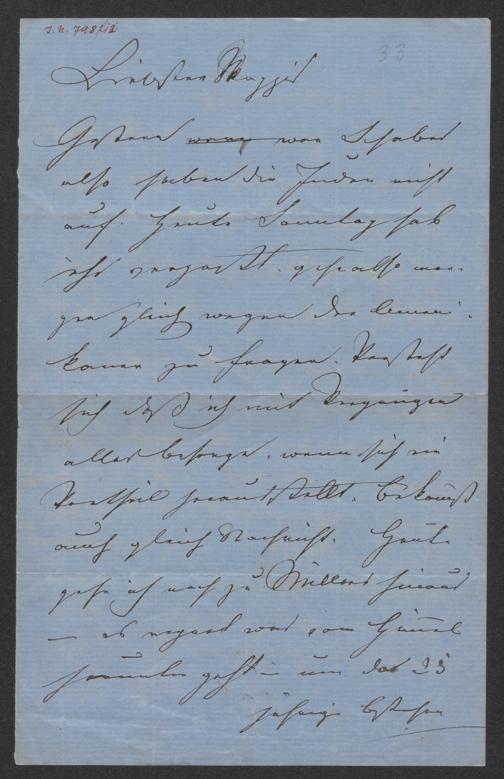 I.N. 79812
33
Liebster
Gestern war Schabes
also haben die Juden nicht
auf. Heute Sonntag hab
ichs verpasst. gehe also mor-
gen gleich wegen der Ameri-
kaner zu fragen. Versteht
sich daß ich mit Vergnügen
alles besorge, wenn sich ein
Vortheil herausstellt. Bekömst
auch gleich Nachricht. Heute
gehe ich noch zu Millers hinaus
— es regnet was vom Himmel
herunter geht — um das 25
jährige Bestehen